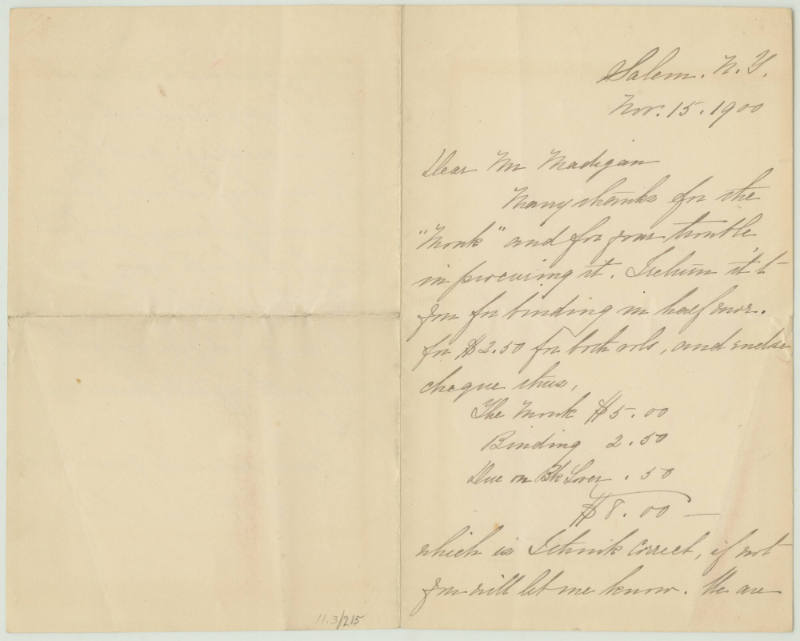 Salem. N.Y.
Nov. 15. 1900
Dear Mr Madigan
Many thanks for the
"Monk" and for your trouble
in procuring it. I return it to
you for binding in half mor.
for $2.50 for both vols, and enclose
cheque thus,
The Monk $5.00
Binding 2.50
Due on Bk Lover .50
$8.00 —
which is I think correct, if not
you will let me know. We are
11.3/215